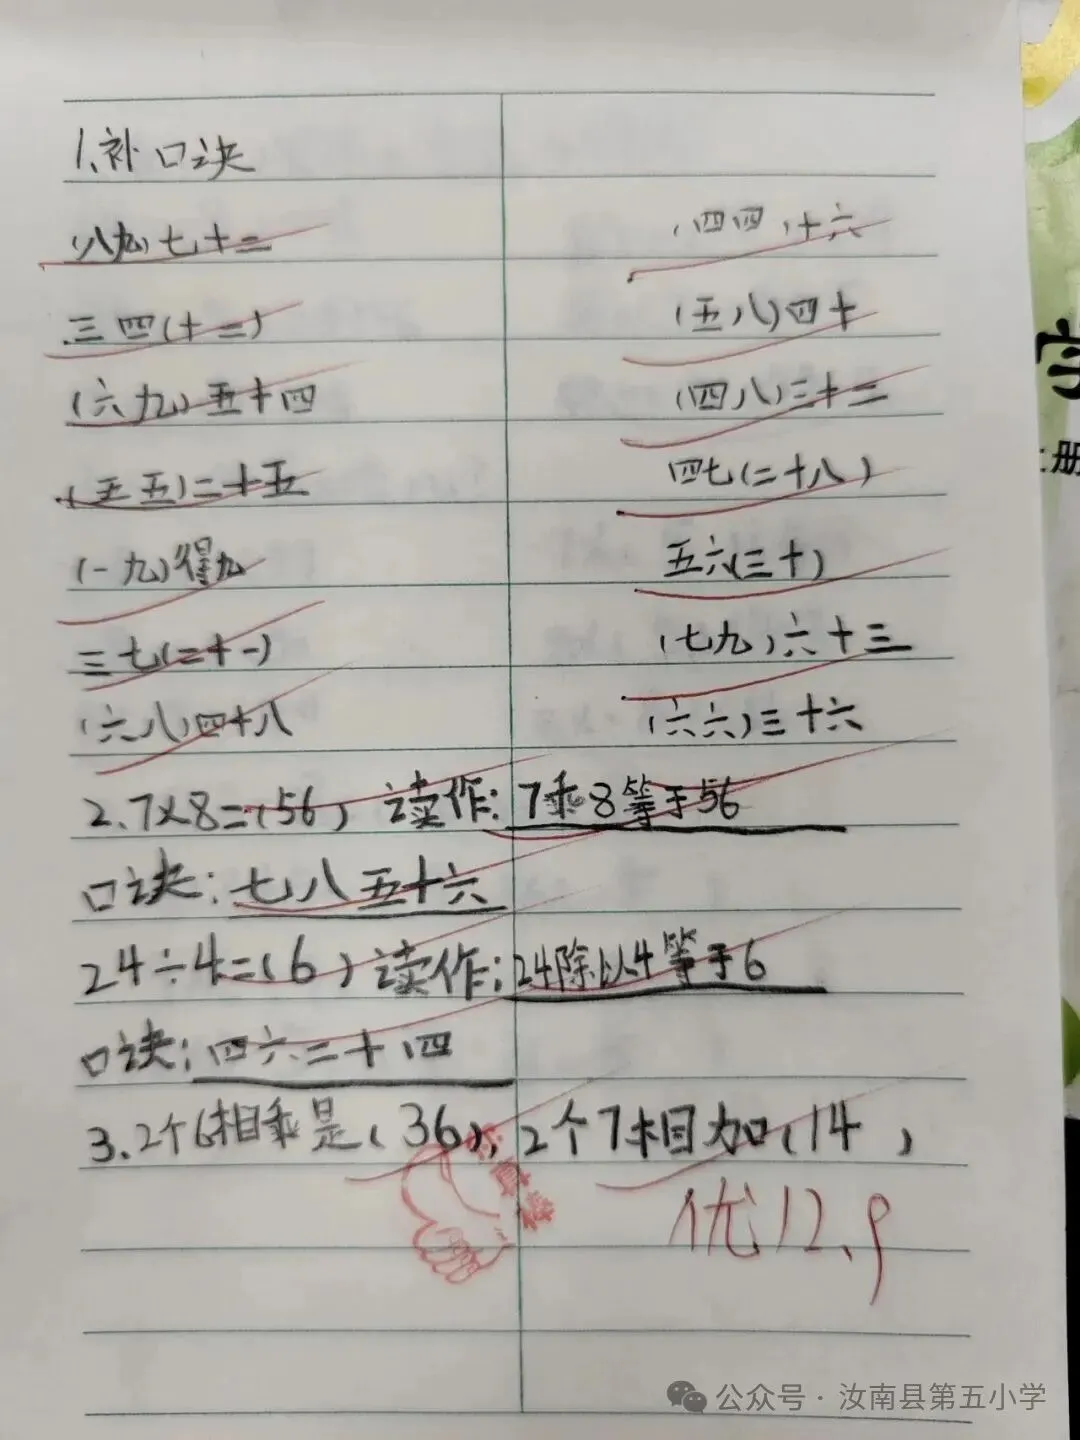 1、补口诀
(八九)七十二 (四四)十六
三四(十二) (五八)四十
(六九)五十四 (四八)三十二
(五五)二十五 四七(二十八)
(一九)得九 五六(三十)
三七(二十一) (七九)六十三
(六八)四十八 (六六)三十六
2、7×8=(56) 读作:7乘8等于56
口诀:七八五十六
24÷4=(6) 读作:24除以4等于6
口诀:四六二十四
3、2个6相乘是(36),2个7相加(14)
优12.9
字
上册
公众号·汝南县第五小学